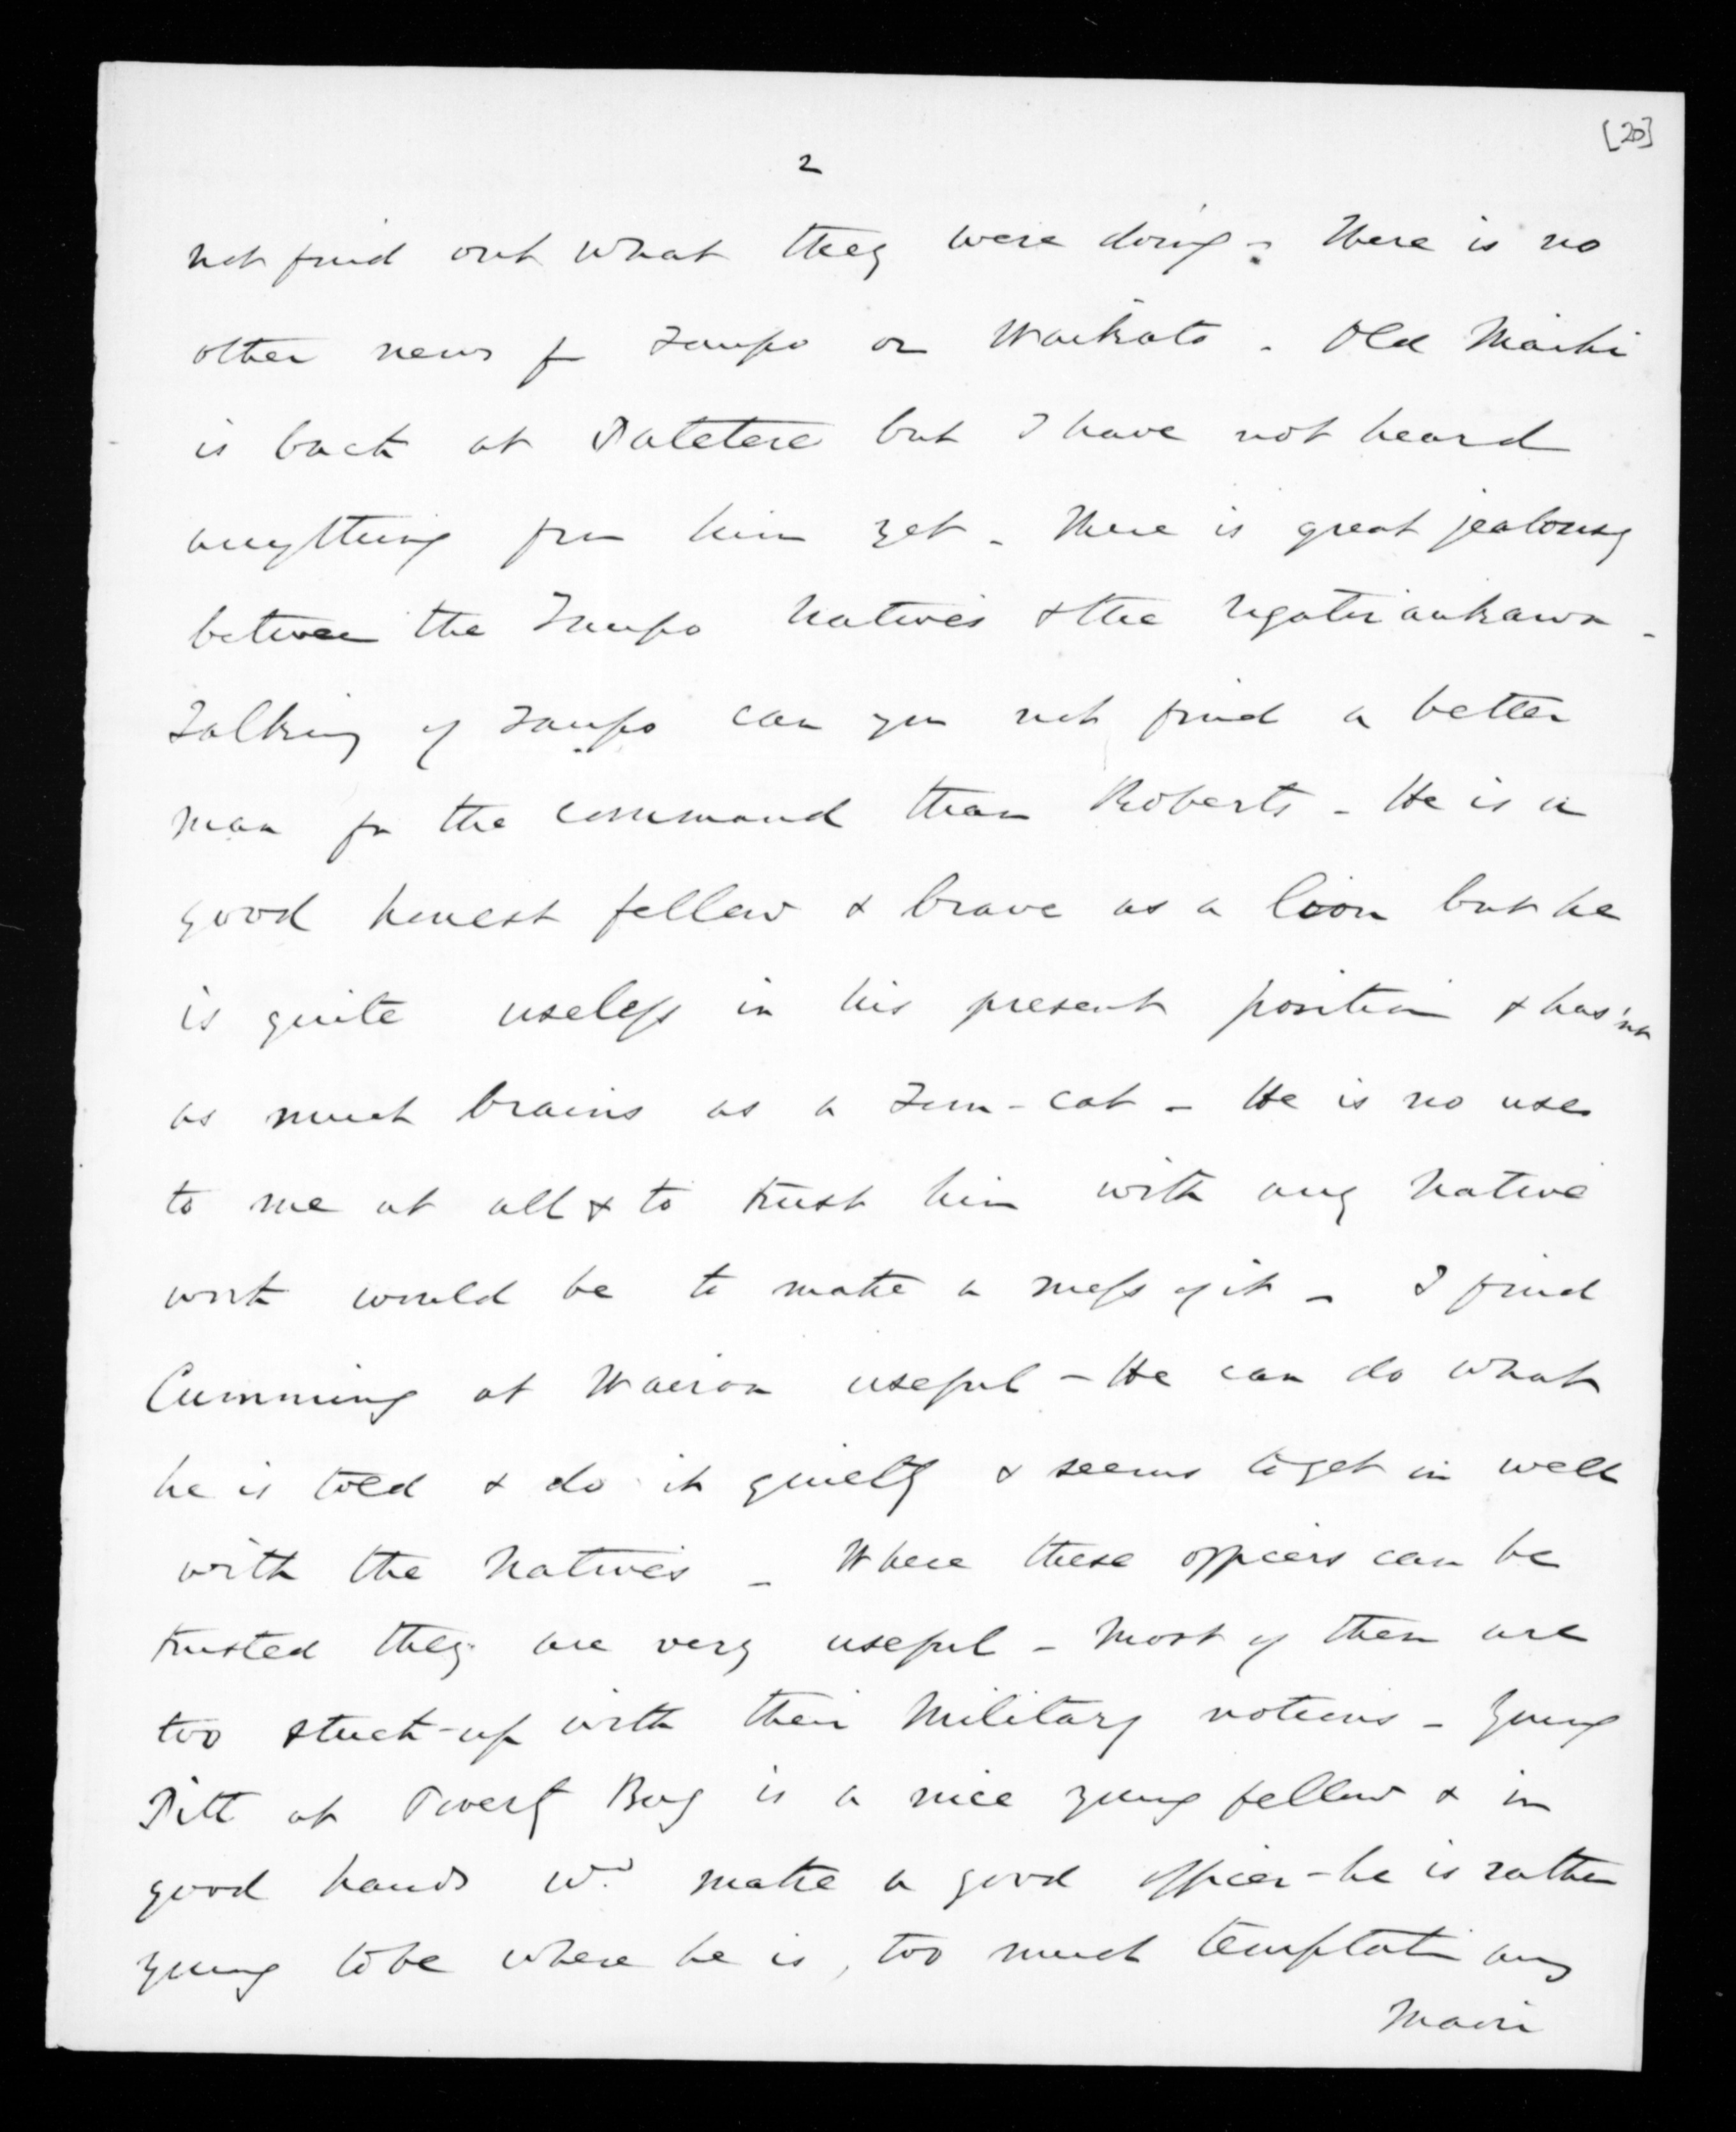 [20]
2
not find out what they were doing - There is no
other news fr Taupo or Waikato - Old Maihi
is back at Patetere but I have not heard
anything from him yet - There is great jealousy
between the Taupo Natives & the Ngatiraukawa -
Talking of Taupo can you not find a better
man for the command than Roberts - He is a
good honest fellow & brave as a lion but he
is quite useless in his present position & has'nt
as much brains as a Tom-cat - He is no use
to me at all & to trust him with any Native
work would be to make a mess of it - I find
Cumming at Wairoa useful - He can do what
he is told & do it quietly & seems to get on well
with the Natives - Where these officers can be
trusted they are very useful - Most of them are
too stuck-up with their Military notions - Young
Pitt at Poverty Bay is a nice young fellow & in
good hands wd. make a good officer - he is rather
young to be where he is, too much temptation any
Maori